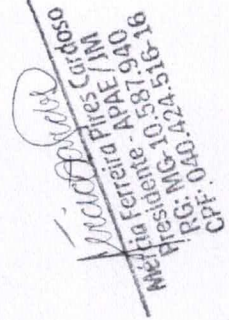 Márcia Ferreira Pires Cardoso
Presidente - APAE / JM
RG: MG-10.587.940
CPF: 040.424.516-16